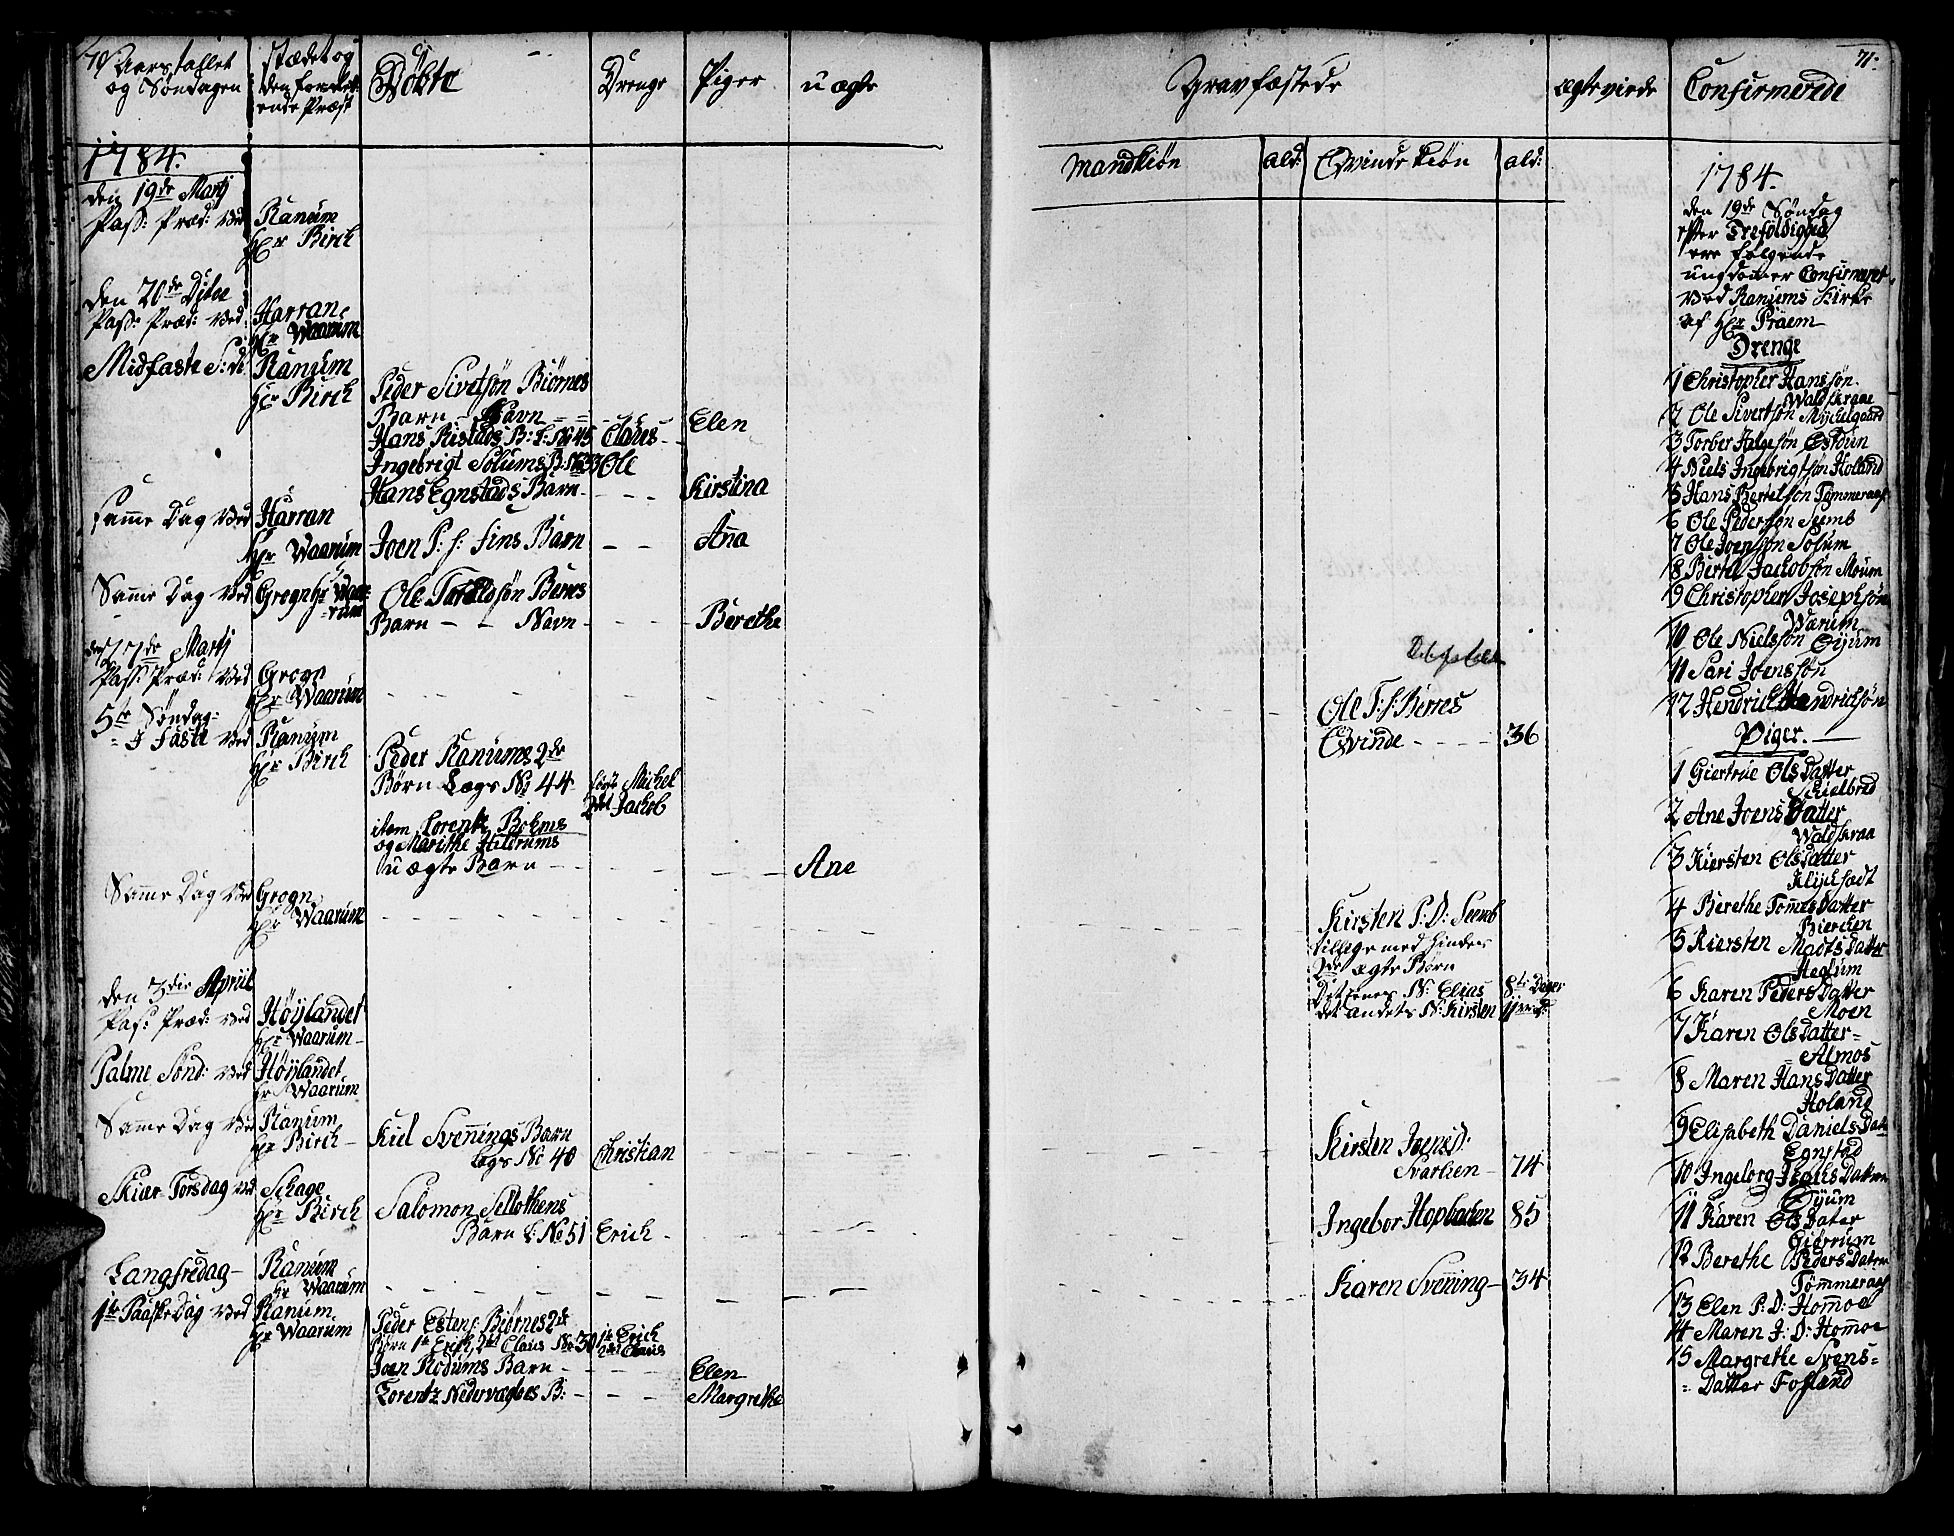 70
Aarstallet
og Søndagen
stædet og
den forret-
ende Præst
Døbte
Drenge
Piger
uægte
1784.
den 19de Martj
Pass: Præd: ved
Ranum
Hr Birch
den 20de Ditoe
Pass: Præd: ved
Harran
Hr Waarum
Midfaste S: d:
Ranum
Hr Birch
Peder Sivetsøn Biørnes
Barn - Navn
Elen
Hans Ristads B: L: No 45
Claus
Ingebrigt Solums B: No 33
Ole
Hans Egnstads Barn
Kirstina
Samme Dag ved
Harran
Hr Waarum
Joen P: s: Fins Barn
Ana
Samme Dag ved
Grogn Hr Waa-
-rum
Ole Toraldsøn Berres
Barn - - Navn
Berethe
Martj
Pass: Præd: ved
Grogn
Hr Waarum
5te Søndag
I Faste ved
Ranum
Hr Birch
Peder Ranums 2de
Børn Legs No 44
Michel
2det Jacob
item Lorentz Bohms
og Marithe Hildrums
uægte Barn
Ane
Samme Dag ved
Grogn
Hr Waarum
den 3die April
Pas: Præd: ved
Høylandet
Hr Waarum
Palme Sønd: ved
Høylandet
Hr Waarum
Samme Dag ved
Ranum
Hr Birch
Kiel Svenings Barn
Legs No 40
Christian
Skier Torsdag ved
Schage
Hr Birch
Salomon Sellothens
Barn L: No 51
Erich
Langfredag
Ranum
Hr Waarum
1te Paaske Dag ved
Ranum
Hr Waarum
Peder Estens: Biørnes 2de
Børn 1te Erich, 2det Claus No 30
1te Erich
2det Claus
Joen Rodums Barn
Elen
Lorentz Nedervægtnes B:
Margrethe
71.
Gravfæstede
ægteviede
Confirmerede
Mandkiøn
ald:
Qvindekiøn
ald:
Ole T: s: Berres
Qvinde
36
Kirsten P: D: Seemb
tillige med hindes
2de ægte Børn
Det eenes N: Elias
8te Dager
Det andets N: Kirsten
Kirsten Joensd:
Svarlien
74
Ingebor Hopladen
85
Karen Svening
34
1784.
den 19de Søndag
efter Trefoldighed
ere følgende
ungdomer Confirmeret
ved Ranums Kirke
af Hr Præem
Drenge
1 Christopher Hanssøn
Waldskraae
2 Ole Sivertsøn Myckelgaard
3 Torber Helgesøn Østduun
4 Niels Ingebrigtsøn Holand
5 Hans Bertelsøn Tømmeraas
6 Ole Pedersøn Seemb
7 Ole Joensøn Solum
8 Bertel Jacobsøn Moum
9 Christopher Josephsøn
Warum
10 Ole Nielssøn Øyum
11 Sari Joenssøn
12 Hendrich Hendrichsøn
Piger.
1 Giertrue Olsdatter
Schielbred
2 Ane Joens Datter
Waldskraa
3 Kiersten Olsdatter
4 Berethe Tomes Datter
Bierchen
5 Kiersten Madts Datter
Heglum
6 Karen Peders Datter
Moen
7 Karen Olsdatter
Almos
8 Maren Hans Datter
Holand
9 Elisabeth Daniels Dat-
Egnstad
10 Ingeborg Isachs Datter
Øyum
11 Karen Ols Dater
Gierrum
12 Berethe Peders Datter
Tømmeraas
13 Elen P: D: Homoe
14 Maren J: D: Homoe
15 Margrethe Svens=
=Datter Fosland